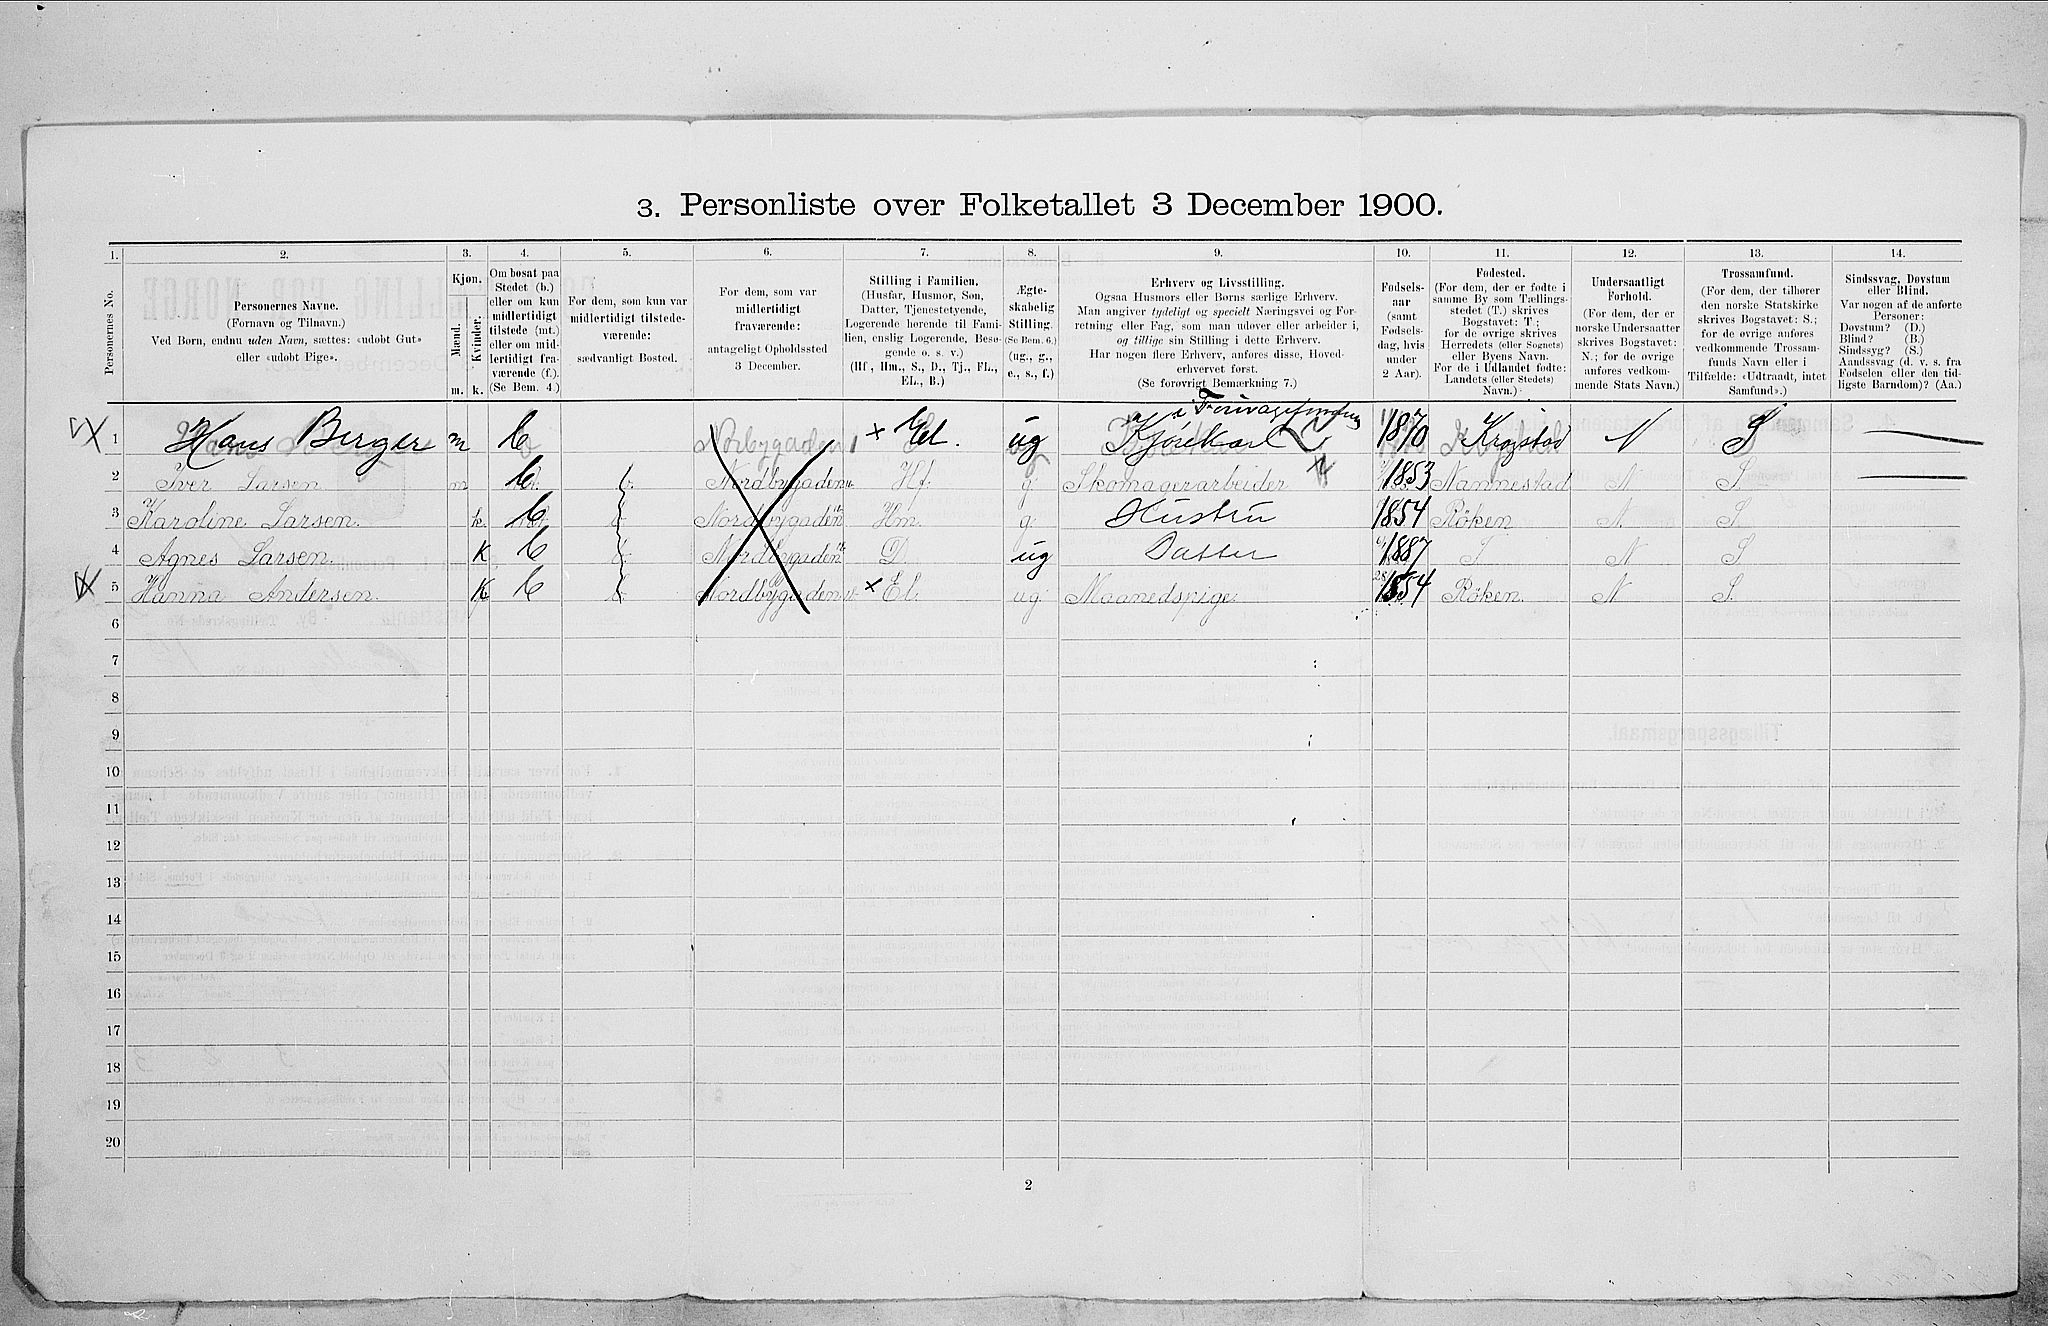 3. Personliste over Folketallet 3 December 1900.
1. 2. 3. 4. 5. 6. 7. 8. 9. 10. 11. 12. 13. 14.
Personernes No.
Personernes Navne.
(Fornavn og Tilnavn.)
Ved Børn, endnu uden Navn, sættes: «udøbt Gut»
eller «udøbt Pige».
Kjøn.
Mænd.
Kvinder.
m. k.
Om bosat paa
Stedet (b.)
eller om kun
midlertidigt
tilstede (mt.)
eller om mid-
lertidigt fra-
værende (f.).
(Se Bem. 4.)
For dem, som kun var
midlertidigt tilstede-
værende:
sædvanligt Bosted.
For dem, som var
midlertidigt
fraværende:
antageligt Opholdssted
3 December.
Stilling i Familien.
(Husfar, Husmor, Søn,
Datter, Tjenestetyende,
Logerende hørende til Fami-
lien, enslig Logerende, Besø-
gende o. s. v.)
(Hf., Hm., S., D., Tj., FL.,
EL., B.)
Ægte-
skabelig
Stilling.
(Se Bem. 6.)
(ug., g.,
e., s., f.)
Erhverv og Livsstilling.
Ogsaa Husmors eller Børns særlige Erhverv.
Man angiver tydeligt og specielt Næringsvei og For-
retning eller Fag, som man udøver eller arbeider i,
og tillige sin Stilling i dette Erhverv.
Har nogen flere Erhverv, anføres disse, Hoved-
erhvervet først.
(Se forøvrigt Bemærkning 7.)
Fødsels-
aar
(samt
Fødsels-
dag, hvis
under
2 Aar).
Fødested.
(For dem, der er fødte i
samme By som Tællings-
stedet (T.) skrives
Bogstavet: T.;
for de øvrige skrives
Herredets (eller Sognets)
eller Byens Navn.
For de i Udlandet fødte:
Landets (eller Stedets)
Navn.)
Undersaatligt
Forhold.
(For dem, der er
norske Undersaatter
skrives Bogstavet:
N.; for de øvrige
anføres vedkom-
mende Stats Navn.)
Trossamfund.
(For dem, der tilhører
den norske Statskirke
skrives Bogstavet: S.;
for de øvrige anføres
vedkommende Trossam-
funds Navn eller i
Tilfælde: «Udtraadt, intet
Samfund».)
Sindssvag, Døvstum
eller Blind.
Var nogen af de anførte
Personer:
Døvstum? (D.)
Blind? (B.)
Sindssyg? (S.)
Aandssvag (d. v. s. fra
Fødselen eller den tid-
ligste Barndom)? (Aa.)
1 Hans Berger m b Norbygaden × El. ug Kjørekarl 1870 Krogstad N S
2 Iver Larsen m b Nordbygaden Hf. g. Skomagerarbeider 1853 Nannestad N S
3 Karoline Larsen. k. b Nordbygaden Hm. g. Hustru 1854 Røken N. S
4 Agnes Larsen. K b Nordbygaden D. ug Datter 1887 T N S
5 Hanna Andersen. K b Nordbygaden × El. ug. Maanedspige 1854 Røken. N S.
6
7
8
9
10
11
12
13
14
15
16
17
18
19
20
2